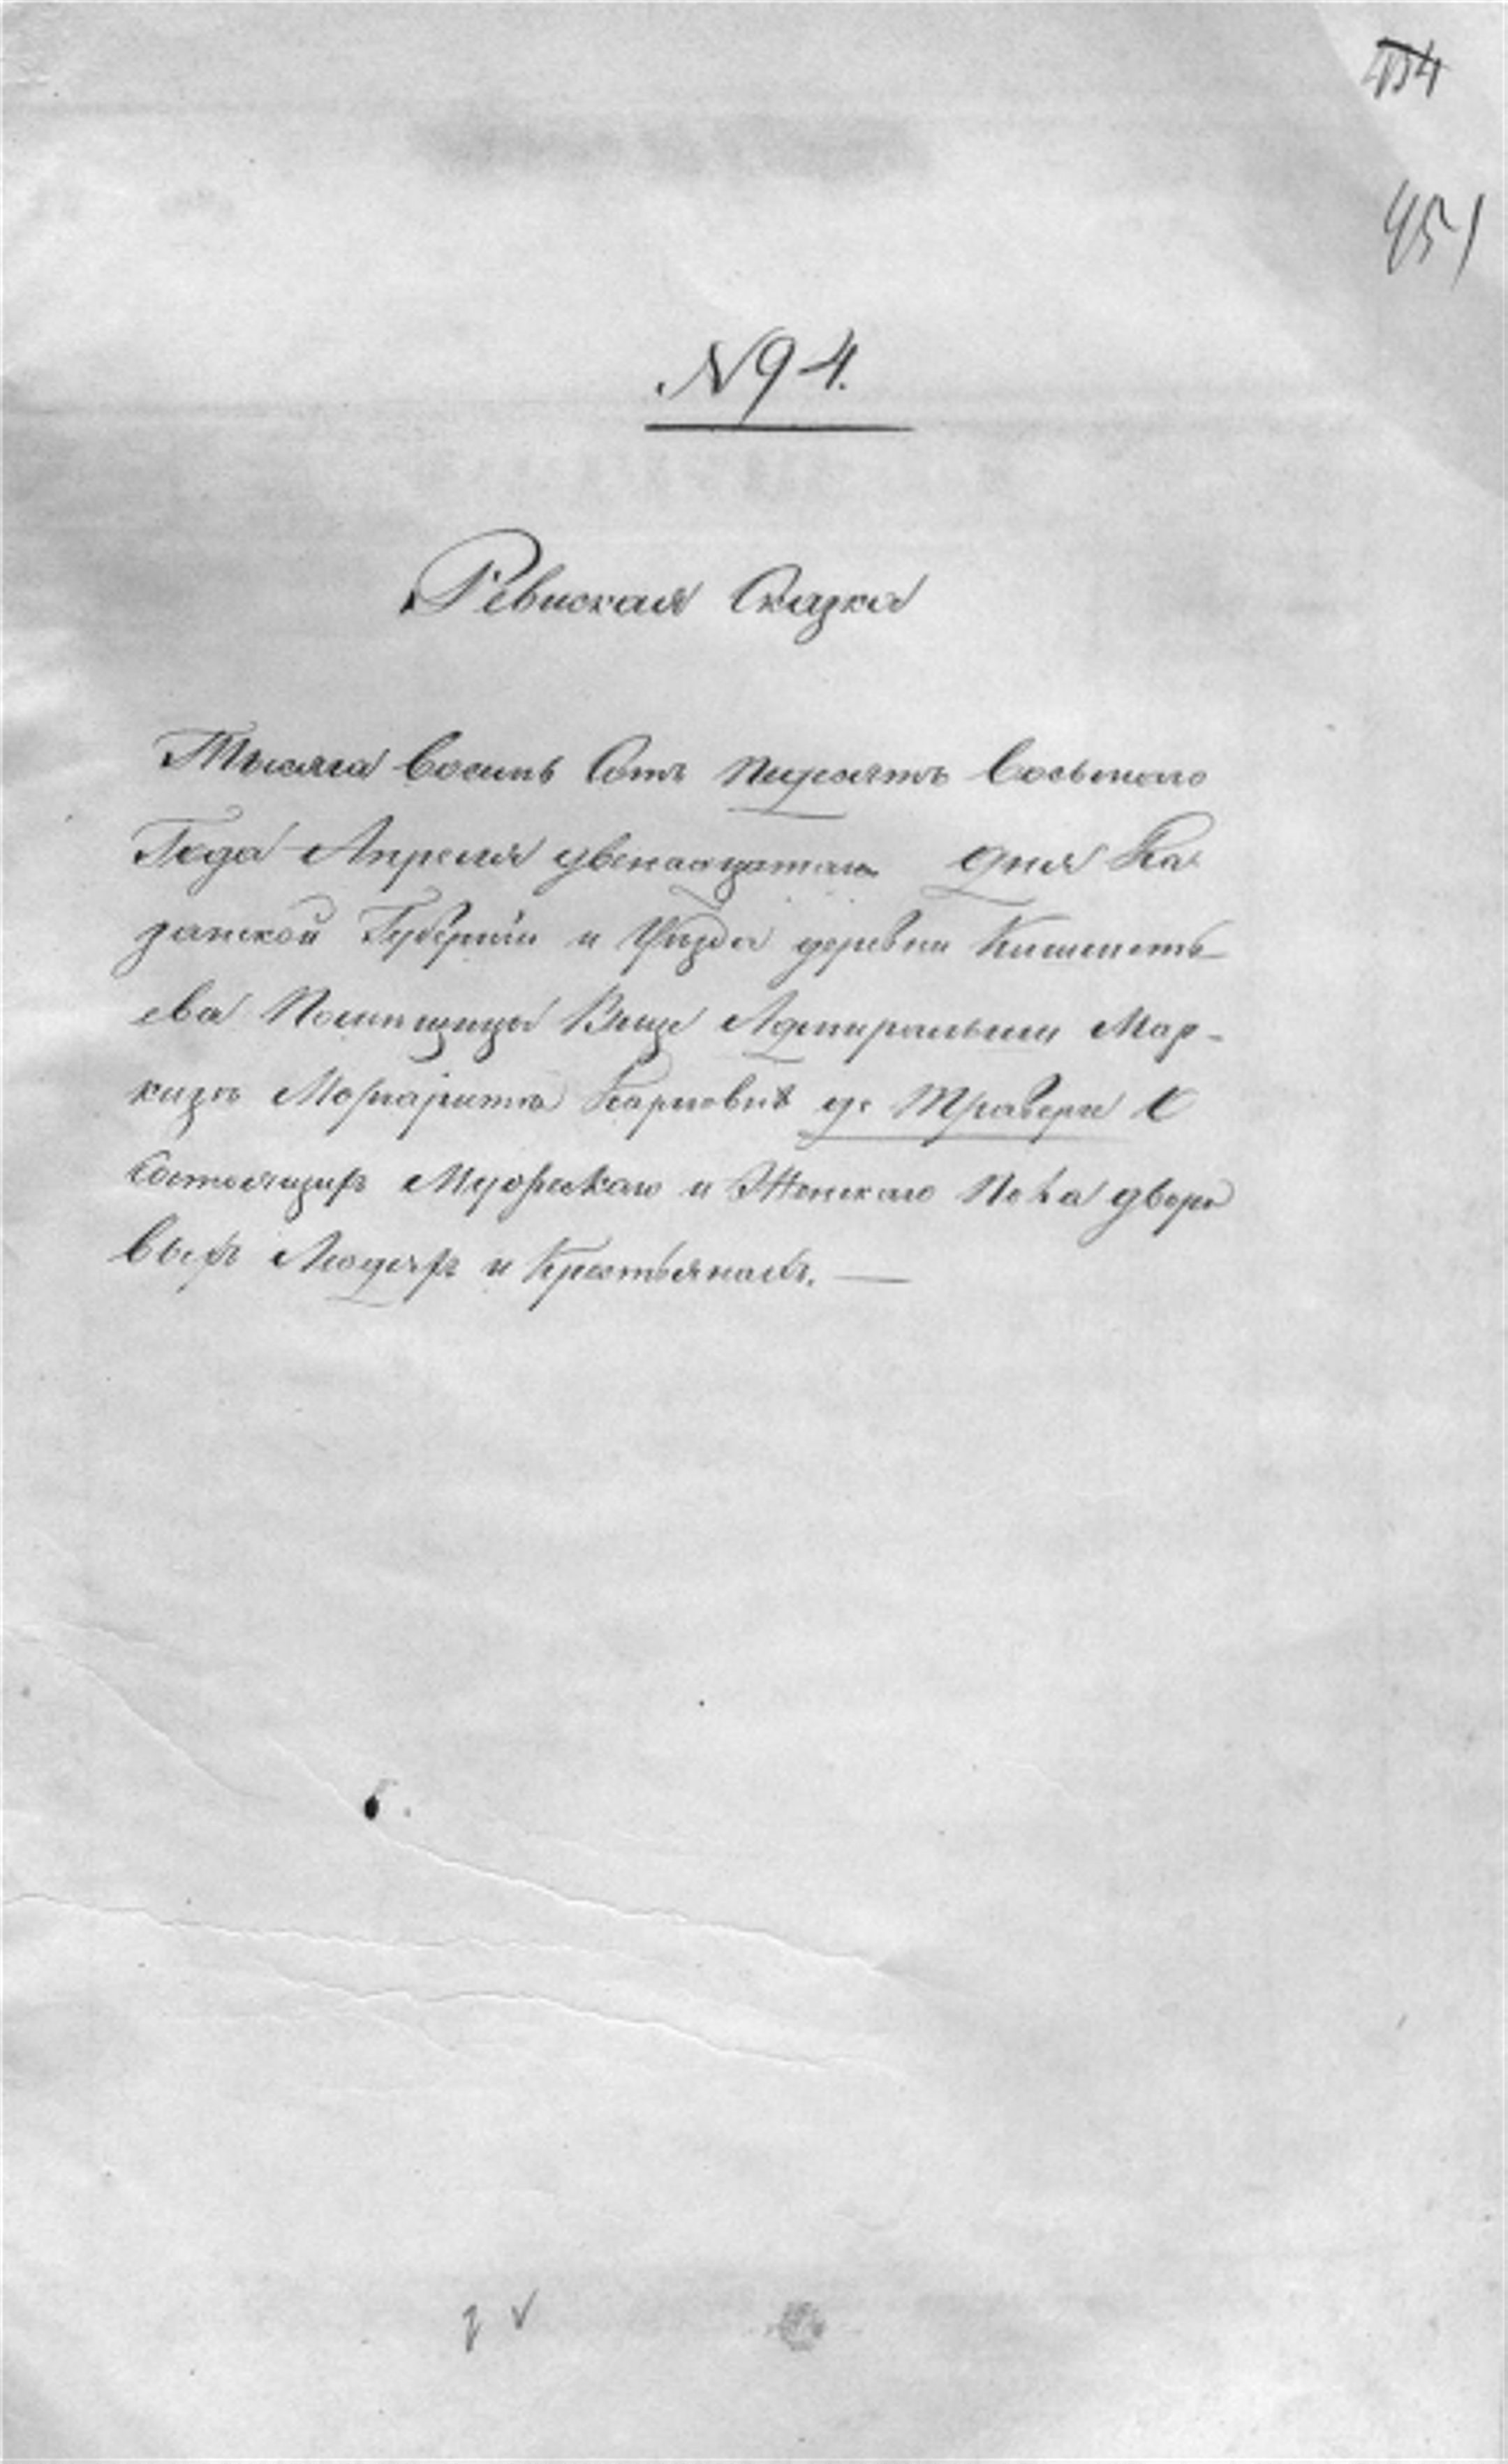 454
451
№ 94.
Ревиская Сказка
Тысяча восемь Сотъ педесятъ восьмого
Года Апреля двенадцатаго дня Ка
занской Губернiи и Уезда деревни
ева Помещицы Вице Адмиральши Мар-
кизы Моргариты Карловнѣ де Траверсе О
Состоящихъ Мужескаго и Женскаго Пола дворо
выхъ Людехъ и Крестьянахъ. —